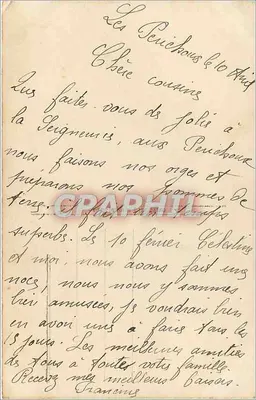 Les Penchons le 10 Avril
Chère cousine
Que faites-vous de jolie à
la Seigneurie, aux Penchons
nous faisons nos orges et
preparons nos pommes de
terre, il fait un temps
superbe. Le 10 février Célestine
et moi, nous avons fait une
noce, nous nous y sommes
bien amusées, je voudrais bien
en avoir une a faire tous les
15 jours. Les meilleures amities
de tous à toutes votre famille.
Recevez mes meilleurs baisers.
Francine
CRAPHIL